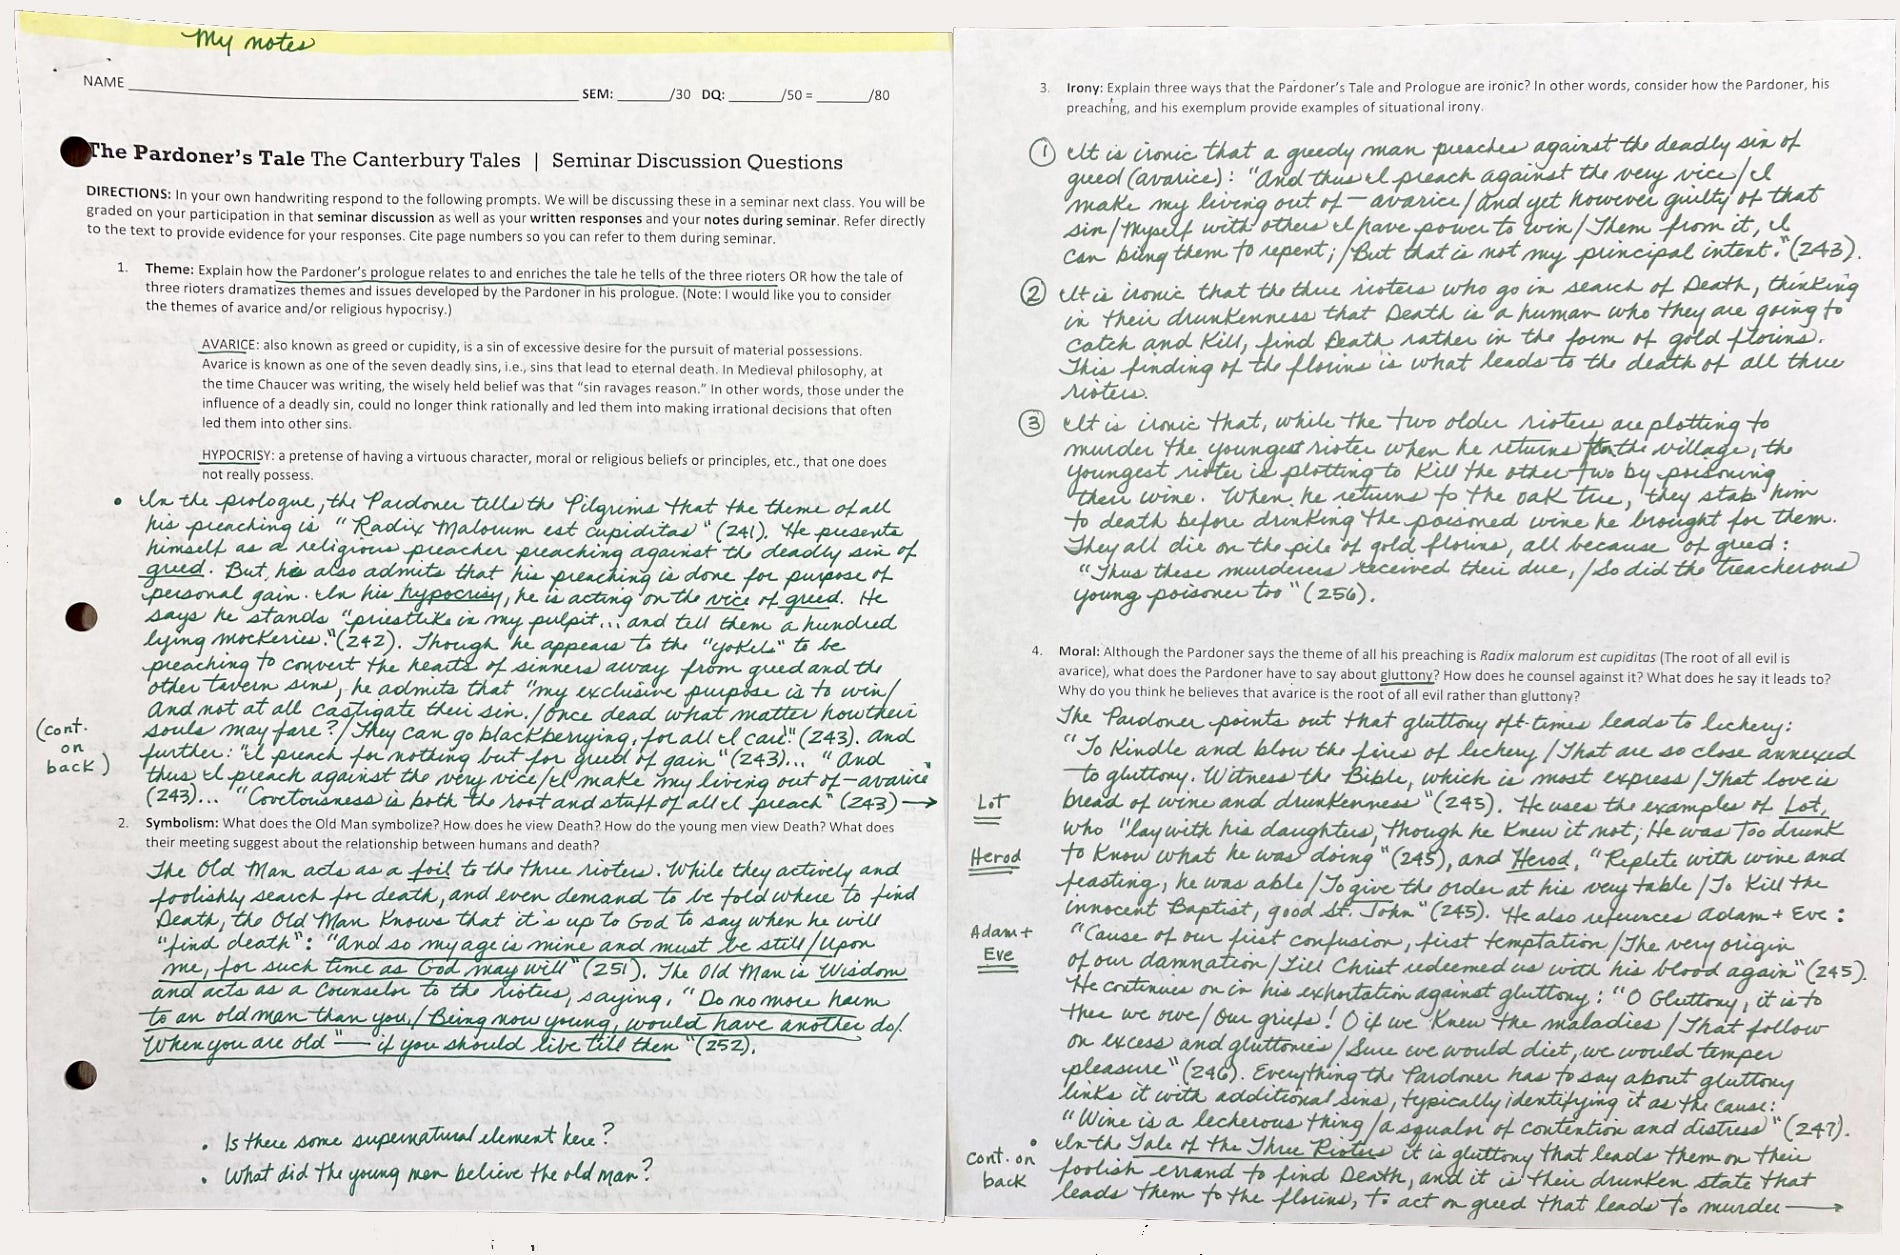 My notes
NAME SEM: /30 DQ: /50 = /80
The Pardoner's Tale The Canterbury Tales | Seminar Discussion Questions
DIRECTIONS: In your own handwriting respond to the following prompts. We will be discussing these in a seminar next class. You will be
graded on your participation in that seminar discussion as well as your written responses and your notes during seminar. Refer directly
to the text to provide evidence for your responses. Cite page numbers so you can refer to them during seminar.
1. Theme: Explain how the Pardoner's prologue relates to and enriches the tale he tells of the three rioters OR how the tale of
three rioters dramatizes themes and issues developed by the Pardoner in his prologue. (Note: I would like you to consider
the themes of avarice and/or religious hypocrisy.)
AVARICE: also known as greed or cupidity, is a sin of excessive desire for the pursuit of material possessions.
Avarice is known as one of the seven deadly sins, i.e., sins that lead to eternal death. In Medieval philosophy, at
the time Chaucer was writing, the wisely held belief was that "sin ravages reason." In other words, those under the
influence of a deadly sin, could no longer think rationally and led them into making irrational decisions that often
led them into other sins.
HYPOCRISY: a pretense of having a virtuous character, moral or religious beliefs or principles, etc., that one does
not really possess.
• In the prologue, the Pardoner tells the Pilgrims that the theme of all
his preaching is "Radix Malorum est cupiditas" (241). He presents
himself as a religious preacher preaching against the deadly sin of
greed. But, he also admits that his preaching is done for purpose of
personal gain. In his hypocrisy, he is acting on the vice of greed. He
says he stands "priestlike in my pulpit... and tell them a hundred
lying mockeries." (242). Though he appears to the "yokels" to be
preaching to convert the hearts of sinners away from greed and the
other tavern sins, he admits that "my exclusive purpose is to win/
And not at all castigate their sin./Once dead what matter how their
souls may fare?/They can go blackberrying, for all I care!" (243). And
further: "I preach for nothing but for greed of gain" (243)... "And
thus I preach against the very vice/I make my living out of - avarice"
(243)... "Covetousness is both the root and stuff of all I preach" (243) →
(cont.
on
back)
2. Symbolism: What does the Old Man symbolize? How does he view Death? How do the young men view Death? What does
their meeting suggest about the relationship between humans and death?
The Old Man acts as a foil to the three rioters. While they actively and
foolishly search for death, and even demand to be told where to find
Death, the Old Man knows that it's up to God to say when he will
"find death": "And so my age is mine and must be still/Upon
me, for such time as God may will" (251). The Old Man is Wisdom
and acts as a Counselor to the rioters, saying, "Do no more harm
to an old man than you,/Being now young, would have another do/
When you are old" — if you should live till then" (252).
• Is there some supernatural element here?
• What did the young men believe the old man?
3. Irony: Explain three ways that the Pardoner's Tale and Prologue are ironic? In other words, consider how the Pardoner, his
preaching, and his exemplum provide examples of situational irony.
① It is ironic that a greedy man preaches against the deadly sin of
greed (avarice): "And thus I preach against the very vice/I
make my living out of - avarice/And yet however guilty of that
sin/Myself with others I have power to win/Them from it, I
can bring them to repent;/But that is not my principal intent." (243).
② It is ironic that the three rioters who go in search of Death, thinking
in their drunkenness that Death is a human who they are going to
catch and kill, find Death rather in the form of gold florins.
This finding of the florins is what leads to the death of all three
rioters.
③ It is ironic that, while the two older rioters are plotting to
murder the youngest rioter when he returns the village, the
youngest rioter is plotting to kill the other two by poisoning
their wine. When he returns to the oak tree, they stab him
to death before drinking the poisoned wine he brought for them.
They all die on the pile of gold florins, all because of greed:
"Thus these murderers received their due,/So did the treacherous
young poisoner too" (256).
4. Moral: Although the Pardoner says the theme of all his preaching is Radix malorum est cupiditas (The root of all evil is
avarice), what does the Pardoner have to say about gluttony? How does he counsel against it? What does he say it leads to?
Why do you think he believes that avarice is the root of all evil rather than gluttony?
The Pardoner points out that gluttony oft-times leads to lechery:
"To kindle and blow the fires of lechery/That are so close annexed
to gluttony. Witness the Bible, which is most express/That love is
bread of wine and drunkenness" (245). He uses the examples of Lot,
who "lay with his daughters, though he knew it not; He was too drunk
to know what he was doing" (245), and Herod, "Replete with wine and
feasting, he was able/To give the order at his very table/To kill the
innocent Baptist, good St. John" (245). He also references Adam + Eve:
"Cause of our first confusion, first temptation/The very origin
of our damnation/Till Christ redeemed us with his blood again" (245).
He continues on in his exhortation against gluttony: "O Gluttony, it is to
thee we owe/Our griefs! O if we knew the maladies/That follow
on excess and gluttonies/Sure we would diet, we would temper
pleasure" (246). Everything the Pardoner has to say about gluttony
links it with additional sins, typically identifying it as the cause:
"Wine is a lecherous thing/a squalor of contention and distress" (247).
• In the Tale of the Three Rioters it is gluttony that leads them on their
foolish errand to find Death, and it is their drunken state that
leads them to the florins, to act on greed that leads to murder →
Lot
Herod
Adam +
Eve
cont. on
back